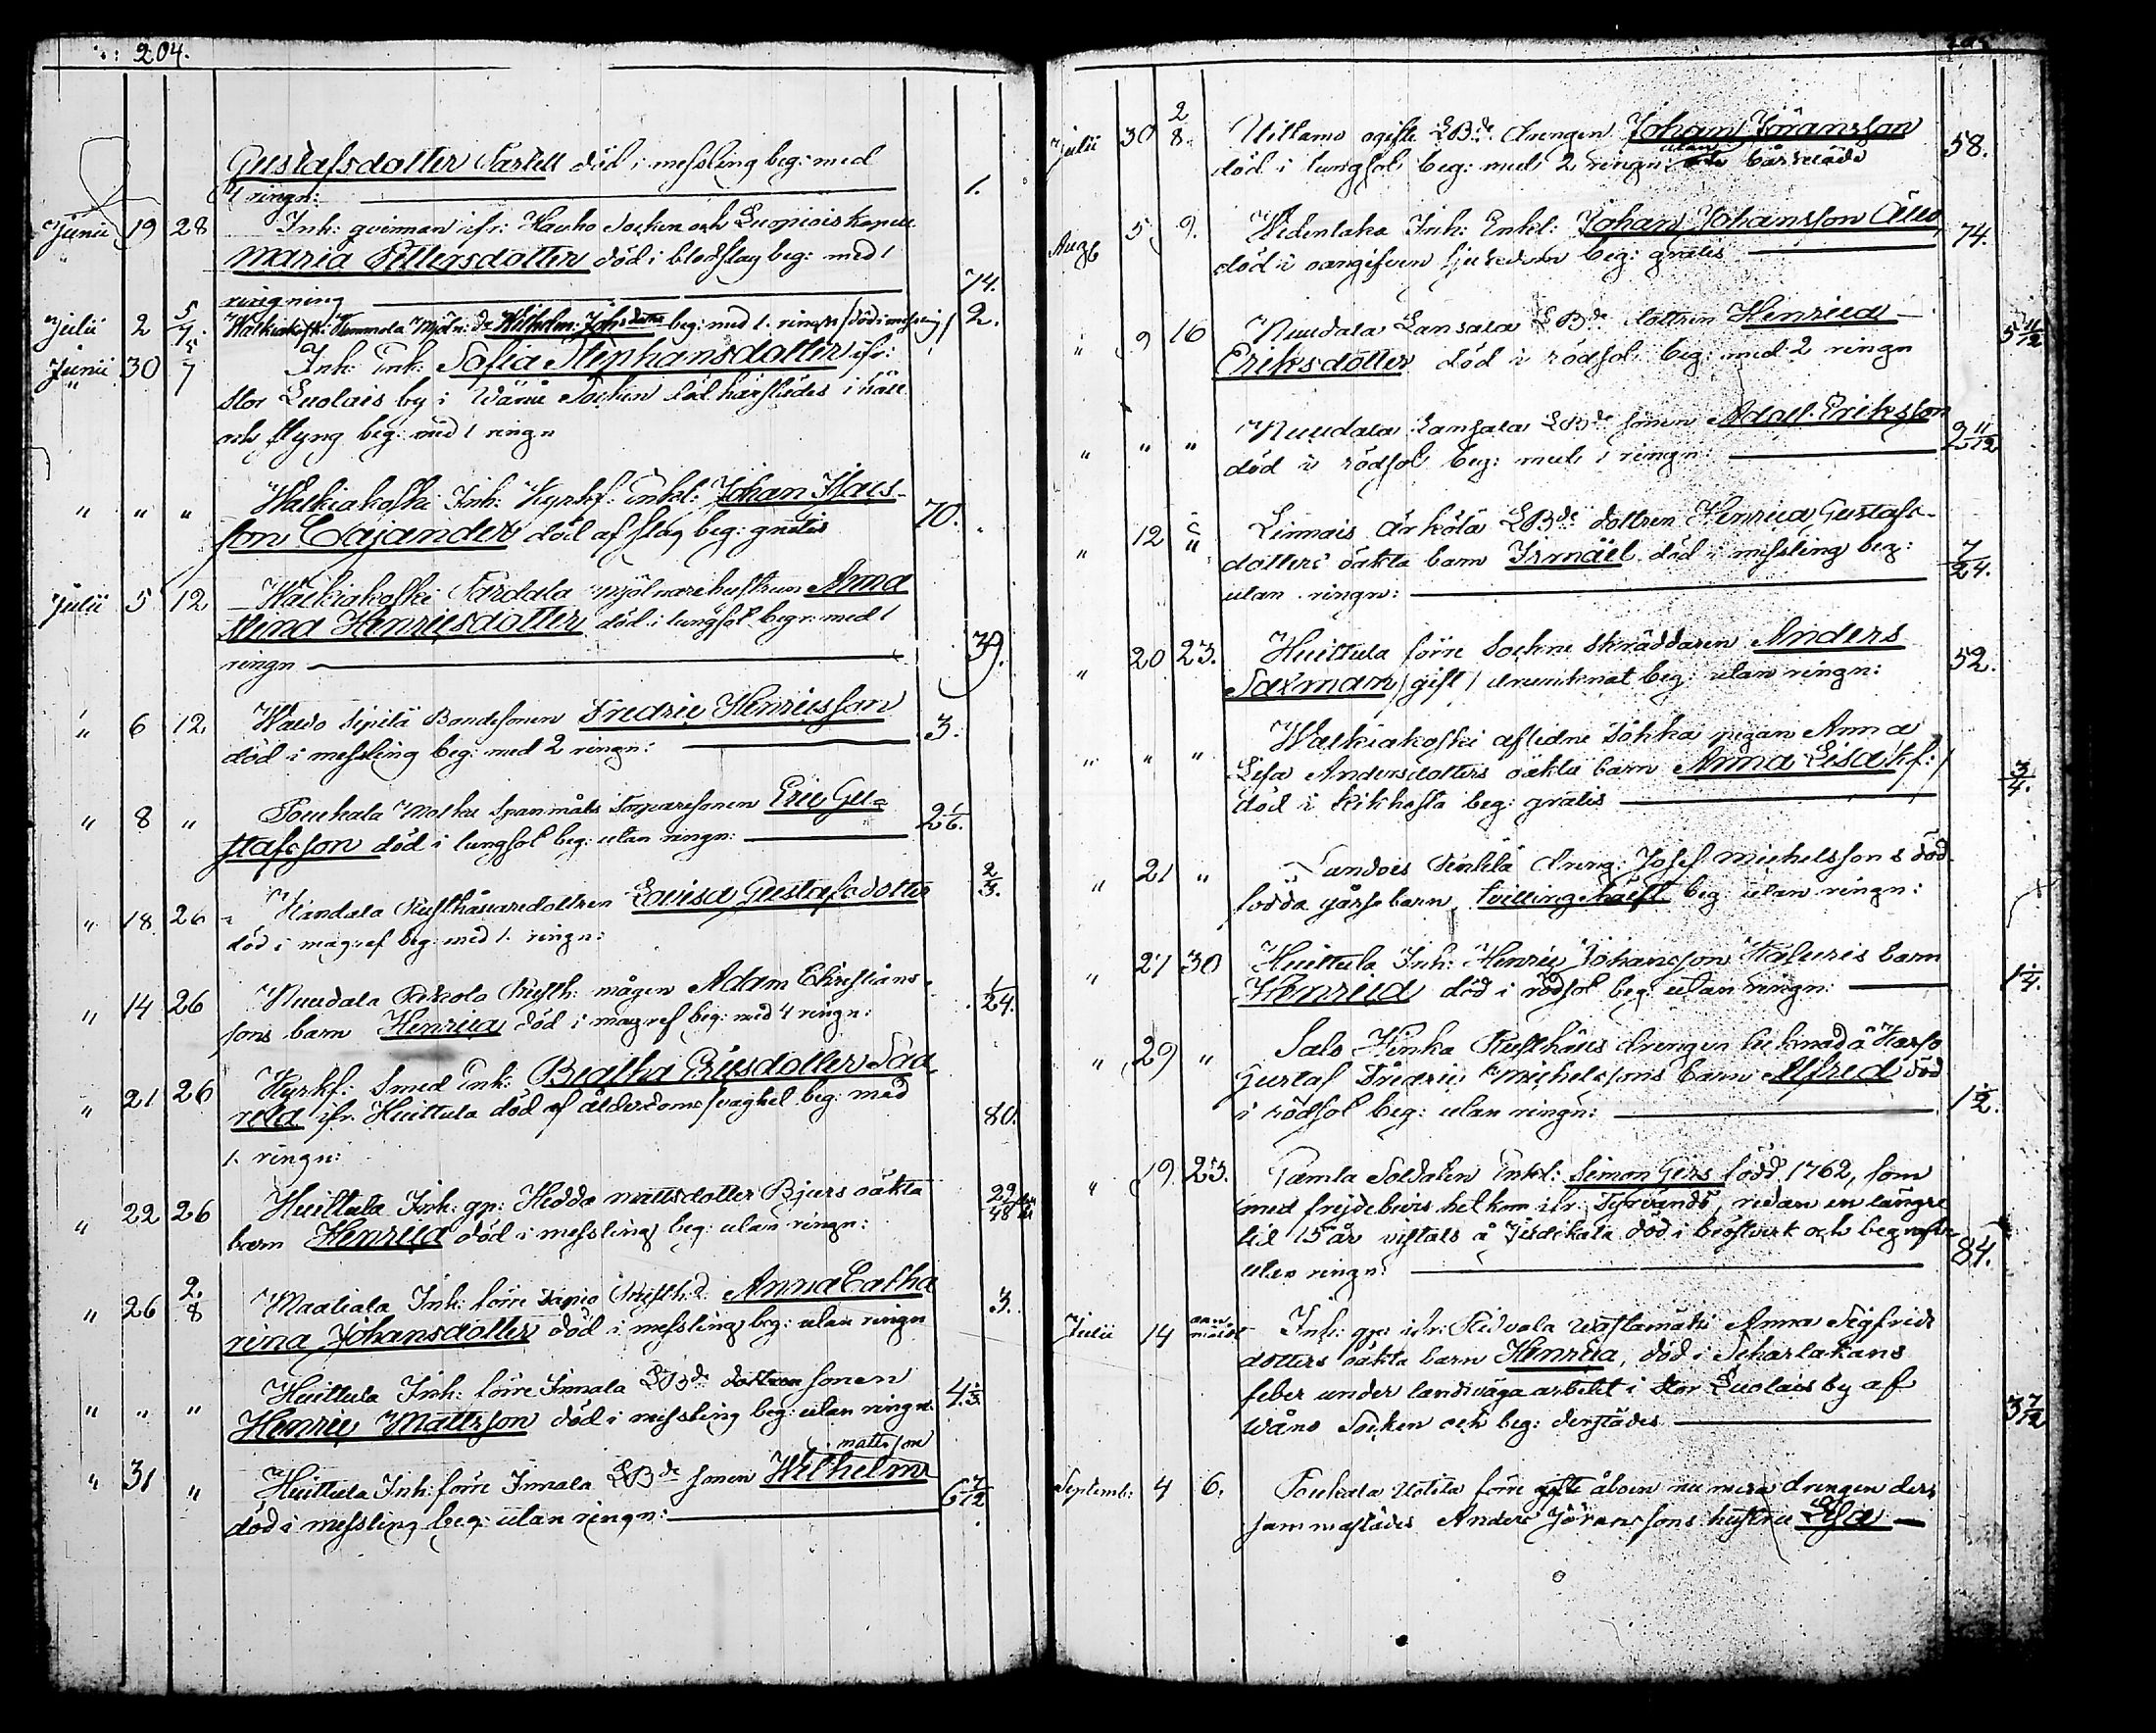 204.
Gustafsdotter Fartell död i messling beg: med
1 ringn: 1.
Junii 19 28 Inh: qvinnan ifr: Hauho Socken och Luopiois kapell
Maria Pettersdotter död i blodslag beg: med 1
ringning 74.
Julii 2 5/7. Walkiakoski Mjöln: d. Wilhelm: Johsdotter beg: med 1. ringn /död i messling/ 2.
Junii 30 5/7 Inh: Enk: Sofia Stephansdotter ifr:
stor Luolais by i Wånå Socken död härstädes i håll
och styng beg: med 1 ringn
" " " Walkiakoski Inh: Kyrkf: Enkl: Johan Isacs-
son Cajander död af slag beg: gratis 70.
Julii 5 12 Walkiakoski Fardala mjölnarehustrun Anna
Stina Henricsdotter död i lungsot begr: med 1
ringn 39.
" 6 12. Waldo Sipilä Bondesonen Fredric Henricsson
död i messling beg: med 2 ringn: 3.
" 8 " Toukala Torparesonen Eric Gu=
stafsson död i lungsot beg: utan ringn: 2 1/6.
" 18 26 Kandala Rusthållaredottren Lovisa Gustafsdotter
död i magref beg: med 1. ringn: 2/3.
" 14 26 Nuudala Pekola Rusth: mågen Adam Christians-
sons barn Henrica död i magref beg: med 4 ringn: 1/24.
" 21 26 Kyrkf: Smed Enk: Beatha Ericsdotter Saa
rela ifr. Huittula död af ålderdomssvaghet beg: med
1. ringn: 80.
" 22 26 Huittula Inh: qv: Hedda Mattsdotter Bjurs oäkta
barn Henrica död i messling beg: utan ringn: 29/48
" 26 2/8 Maatiala Inh: förre Tapio Rusth: d: Anna Catha
rina Johansdotter död i messling beg: utan ringn 3.
" " " Huittula Inh: förre Innala LBde dottren sonen
Henric Mattsson död i messling beg: utan ringn 4 1/3.
" 31 " Huittula Inh: förre Innala LBde sonen Wilhelm mattsson
död i messling beg: utan ringn: 6 7/12
Julii 30 2/8. Uittamo ogifte LBde drengen Johan Jöransson
död i lungsot beg: med 2 ringn: utan bårkläde 58.
Aug: 5 9. Wedentaka Inh: Enkl: Johan Johansson
död i oangifven sjukdom beg: gratis 74.
" 9 16 Nuudala Lansala LBde dottren Henrica
Eriksdotter död i rödsot beg: med 2 ringn 5 11/12
" " " Nuudala Lansala LBde sonen Adolf Eriksson
död i rödsot beg: med 1 ringn: 2 11/12
" 12 " Linnais Arkölä LBde dottren Henrica Gustafs-
dotters oäkta barn Ismael död i messling beg:
utan ringn: 7/24.
" 20 23. Huittula förre Sockne skräddaren Anders
Saxman /gift/ drunknat beg: utan ringn: 52.
" " " Walkiakoski aflidne Sohka pigan Anna
Lisa Andersdotters oäkta barn Anna Lisa /kf:/
död i kikhosta beg: gratis 3/4.
" 21 " dreng: Josef Michelssons död-
födda gåsse barn, tvilling beg: utan ringn:
" 27 30 Huittula Inh: Henric Johansson barn
Henrica död i rödsot beg: utan ringn: 1 1/4.
" 29 " Salo Hinka Rusthålls drengen
Gustaf Fredric Michelssons barn Alfred död
i rödsot beg: utan ringn: 1 1/2.
" 19. 23. Gamla Soldaten Enkl: Simon Gers född 1762, som
med frejdebevis kom ifr: Tyrvändö, redan en längre
tid 15 år vistats å död i bröstverk och begrafven
utan ringn: 84.
Julii 14 Inh: qv: ifr: Anna Sigfrids
dotters oäkta barn Henrica, död i Scharlakans
feber under landsvägaarbetet i stor Luolais by af
Wånå Socken och beg: derstädes 3 7/12
Septemb: 4 6. Toukala Uotila förre gifte åboen nu mera drengen der
sammastädes Anders Jöranssons hustru Lisa